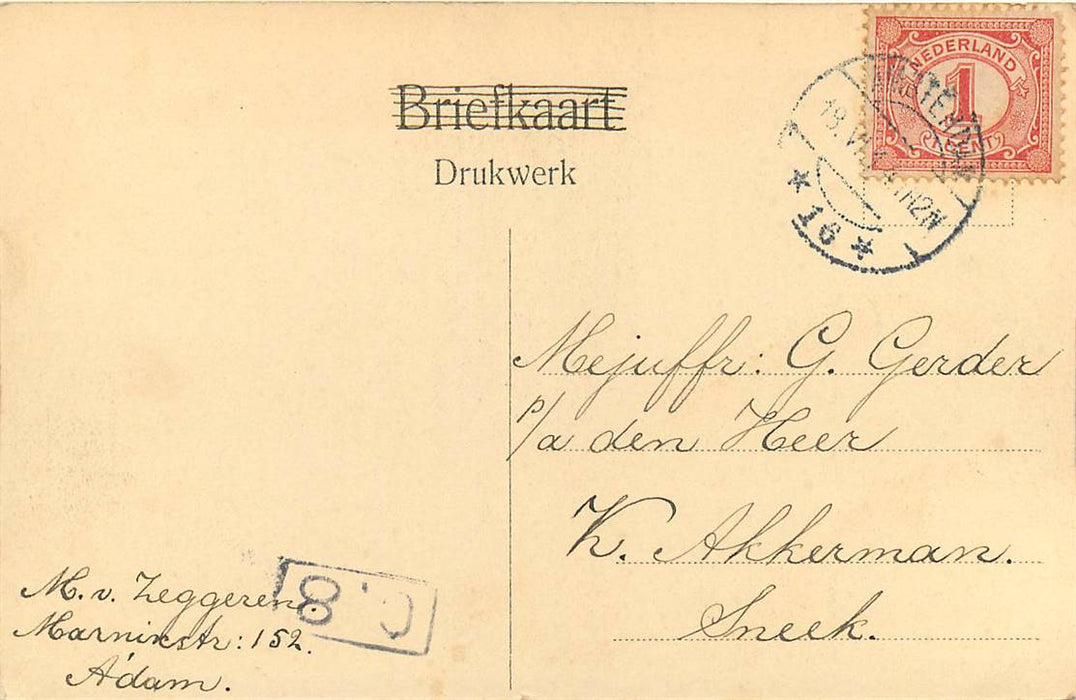 Briefkaart
Drukwerk
NEDERLAND
1
CENT
* 16 *
Mejuffr: G. Gerder
p/a den Heer
K. Akkerman.
Sneek.
M. v. Zeggeren.
Marnixstr: 152.
A'dam.
C. 8